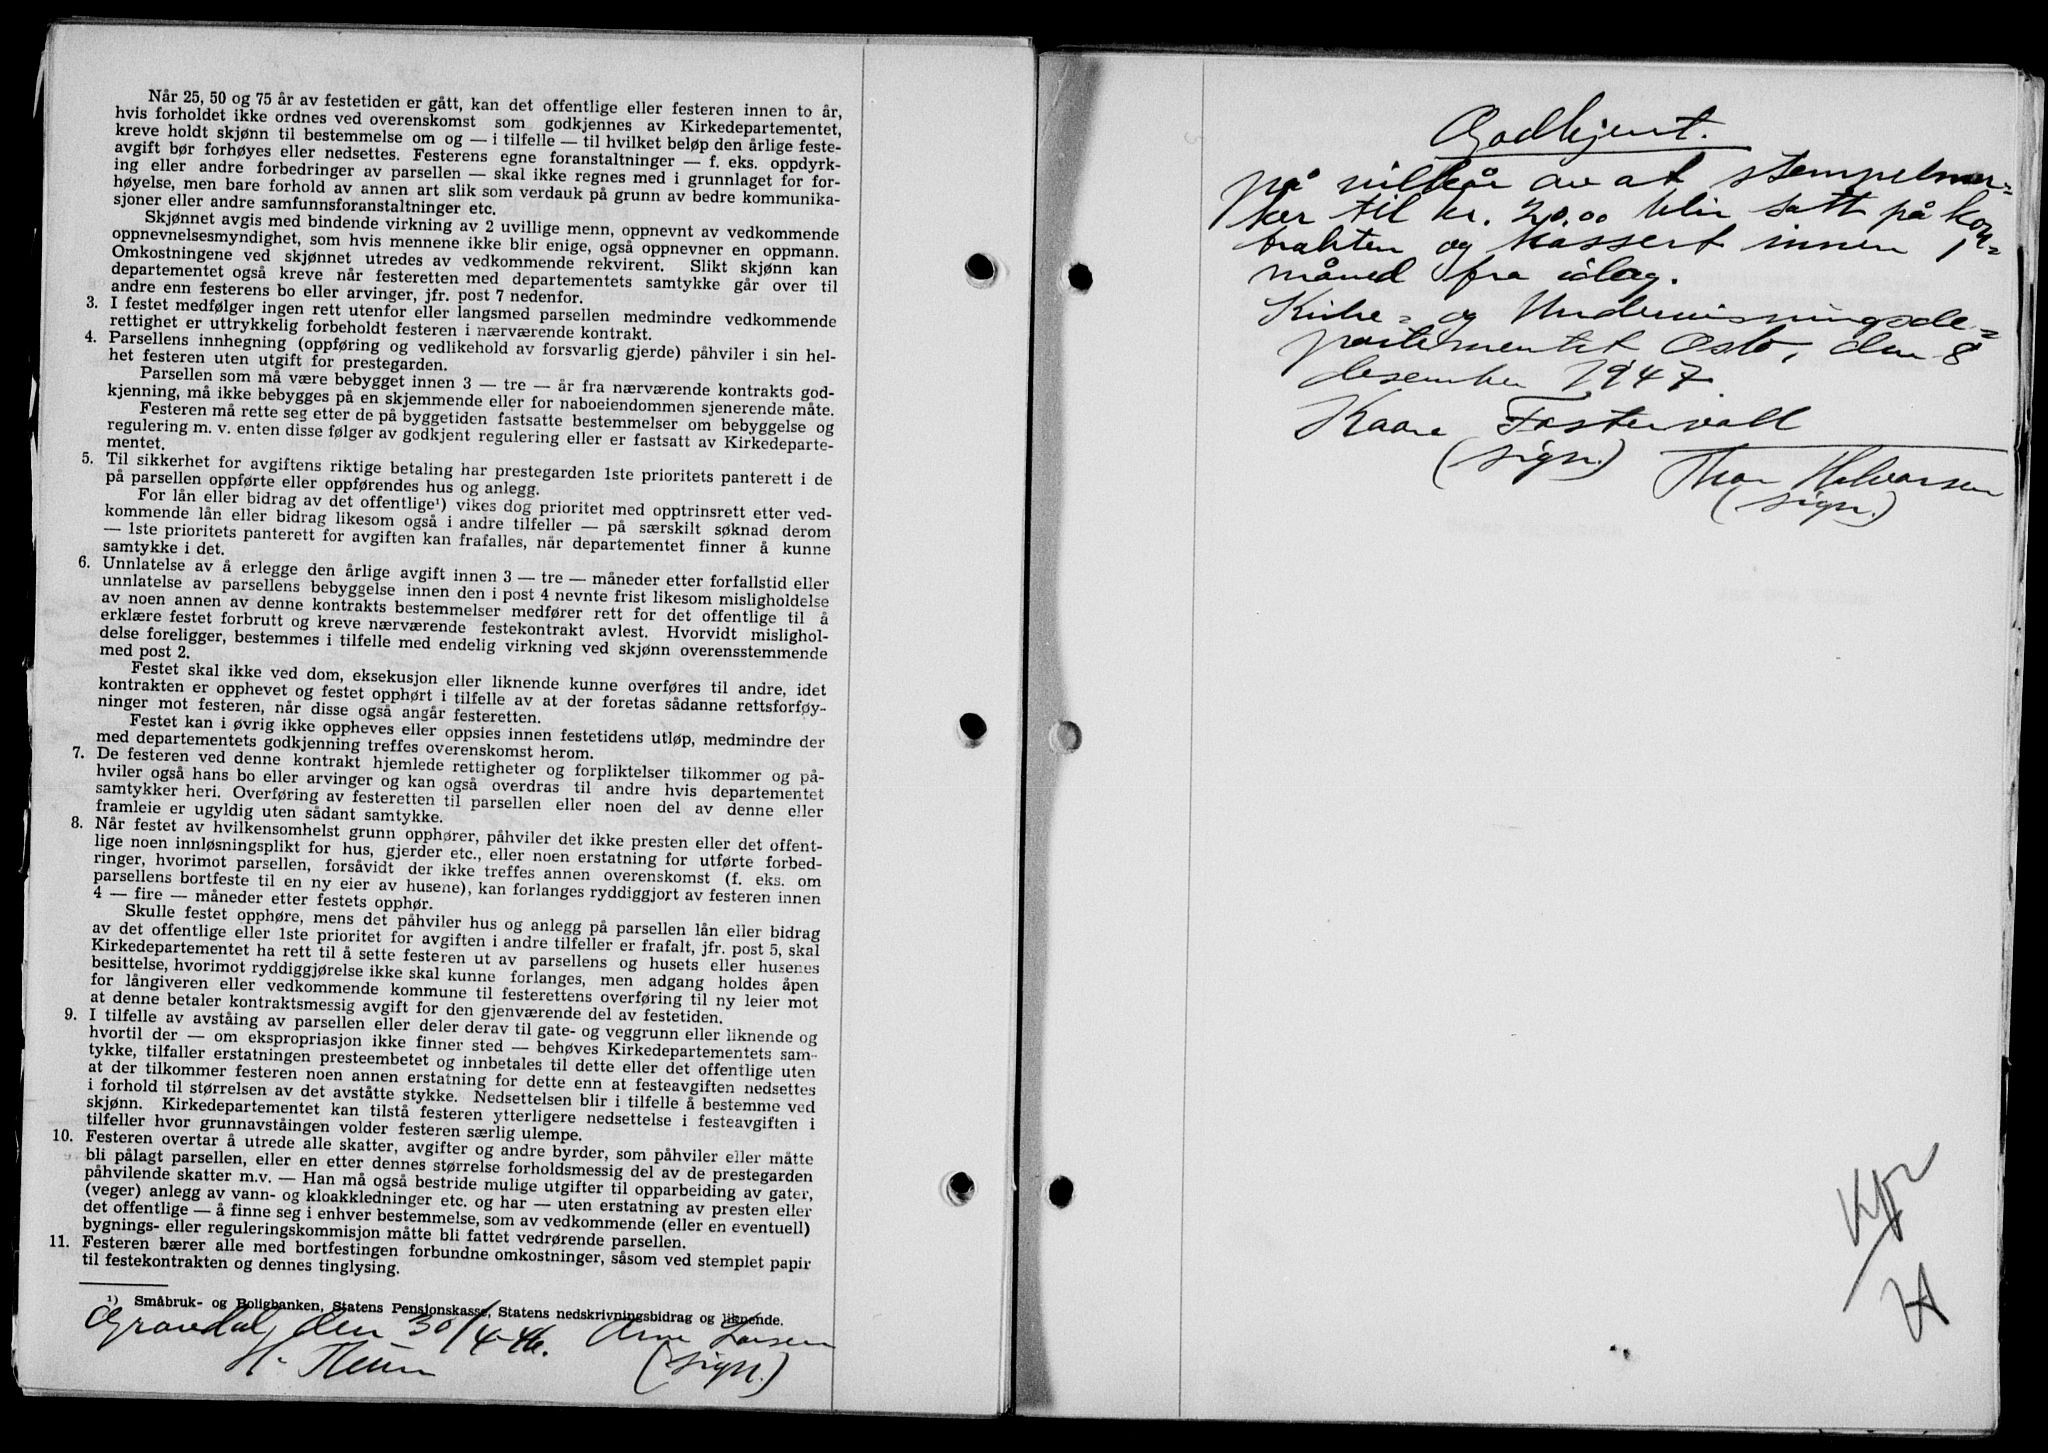 Når 25, 50 og 75 år av festetiden er gått, kan det offentlige eller festeren innen to år,
hvis forholdet ikke ordnes ved overenskomst som godkjennes av Kirkedepartementet,
kreve holdt skjønn til bestemmelse om og — i tilfelle — til hvilket beløp den årlige feste-
avgift bør forhøyes eller nedsettes. Festerens egne foranstaltninger — f. eks. oppdyrk-
ing eller andre forbedringer av parsellen — skal ikke regnes med i grunnlaget for for-
høyelse, men bare forhold av annen art slik som verdauk på grunn av bedre kommunika-
sjoner eller andre samfunnsforanstaltninger etc.
Skjønnet avgis med bindende virkning av 2 uvillige menn, oppnevnt av vedkommende
oppnevnelsesmyndighet, som hvis mennene ikke blir enige, også oppnevner en oppmann.
Omkostningene ved skjønnet utredes av vedkommende rekvirent. Slikt skjønn kan
departementet også kreve når festeretten med departementets samtykke går over til
andre enn festerens bo eller arvinger, jfr. post 7 nedenfor.
3. I festet medfølger ingen rett utenfor eller langsmed parsellen medmindre vedkommende
rettighet er uttrykkelig forbeholdt festeren i nærværende kontrakt.
4. Parsellens innhegning (oppføring og vedlikehold av forsvarlig gjerde) påhviler i sin hel-
het festeren uten utgift for prestegarden.
Parsellen som må være bebygget innen 3 — tre — år fra nærværende kontrakts god-
kjenning, må ikke bebygges på en skjemmende eller for naboeiendommen sjenerende måte.
Festeren må rette seg etter de på byggetiden fastsatte bestemmelser om bebyggelse og
regulering m. v. enten disse følger av godkjent regulering eller er fastsatt av Kirkedeparte-
mentet.
5. Til sikkerhet for avgiftens riktige betaling har prestegarden 1ste prioritets panterett i de
på parsellen oppførte eller oppførendes hus og anlegg.
For lån eller bidrag av det offentlige¹) vikes dog prioritet med opptrinsrett etter ved-
kommende lån eller bidrag likesom også i andre tilfeller — på særskilt søknad derom
— 1ste prioritets panterett for avgiften kan frafalles, når departementet finner å kunne
samtykke i det.
6. Unnlatelse av å erlegge den årlige avgift innen 3 — tre — måneder etter forfallstid eller
unnlatelse av parsellens bebyggelse innen den i post 4 nevnte frist likesom misligholdelse
av noen annen av denne kontrakts bestemmelser medfører rett for det offentlige til å
erklære festet forbrutt og kreve nærværende festekontrakt avlest. Hvorvidt mislighol-
delse foreligger, bestemmes i tilfelle med endelig virkning ved skjønn overensstemmende
med post 2.
Festet skal ikke ved dom, eksekusjon eller liknende kunne overføres til andre, idet
kontrakten er opphevet og festet opphørt i tilfelle av at der foretas sådanne rettsforføy-
ninger mot festeren, når disse også angår festeretten.
Festet kan i øvrig ikke oppheves eller oppsies innen festetidens utløp, medmindre der
med departementets godkjenning treffes overenskomst herom.
7. De festeren ved denne kontrakt hjemlede rettigheter og forpliktelser tilkommer og på-
hviler også hans bo eller arvinger og kan også overdras til andre hvis departementet
samtykker heri. Overføring av festeretten til parsellen eller noen del av denne eller
framleie er ugyldig uten sådant samtykke.
8. Når festet av hvilkensomhelst grunn opphører, påhviler det ikke presten eller det offent-
lige noen innløsningsplikt for hus, gjerder etc., eller noen erstatning for utførte forbed-
ringer, hvorimot parsellen, forsåvidt der ikke treffes annen overenskomst (f. eks. om
parsellens bortfeste til en ny eier av husene), kan forlanges ryddiggjort av festeren innen
4 — fire — måneder etter festets opphør.
Skulle festet opphøre, mens det påhviler hus og anlegg på parsellen lån eller bidrag
av det offentlige eller 1ste prioritet for avgiften i andre tilfeller er frafalt, jfr. post 5, skal
Kirkedepartementet ha rett til å sette festeren ut av parsellens og husets eller husenes
besittelse, hvorimot ryddiggjørelse ikke skal kunne forlanges, men adgang holdes åpen
for långiveren eller vedkommende kommune til festerettens overføring til ny leier mot
at denne betaler kontraktsmessig avgift for den gjenværende del av festetiden.
9. I tilfelle av avståing av parsellen eller deler derav til gate- og veggrunn eller liknende og
hvortil der — om ekspropriasjon ikke finner sted — behøves Kirkedepartementets sam-
tykke, tilfaller erstatningen presteembetet og innbetales til dette eller det offentlige uten
at der tilkommer festeren noen annen erstatning for dette enn at festeavgiften nedsettes
i forhold til størrelsen av det avståtte stykke. Nedsettelsen blir i tilfelle å bestemme ved
skjønn. Kirkedepartementet kan tilstå festeren ytterligere nedsettelse i festeavgiften i
tilfeller hvor grunnavståingen volder festeren særlig ulempe.
10. Festeren overtar å utrede alle skatter, avgifter og andre byrder, som påhviler eller måtte
bli pålagt parsellen, eller en etter dennes størrelse forholdsmessig del av de prestegarden
påhvilende skatter m.v. — Han må også bestride mulige utgifter til opparbeiding av gater,
(veger) anlegg av vann- og kloakkledninger etc. og har — uten erstatning av presten eller
det offentlige — å finne seg i enhver bestemmelse, som av vedkommende (eller en eventuell)
bygnings- eller reguleringskommisjon måtte bli fattet vedrørende parsellen.
11. Festeren bærer alle med bortfestingen forbundne omkostninger, såsom ved stemplet papir
til festekontrakten og dennes tinglysing.
¹) Småbruk- og Boligbanken, Statens Pensjonskasse, Statens nedskrivningsbidrag og liknende.
Gravdal, den 30/4-46. Arne Larsen
H. Theum (sign.)
Godkjent.
på vilkår av at stempelmer-
ker til kr. 20.00 blir satt på kon-
trakten og kassert innen 1
måned fra idag.
Kirke- og Undervisningsde-
partementet Oslo, den 8
desember 1947.
Kaare Fostervoll
(sign.) Thor Halvorsen
(sign.)